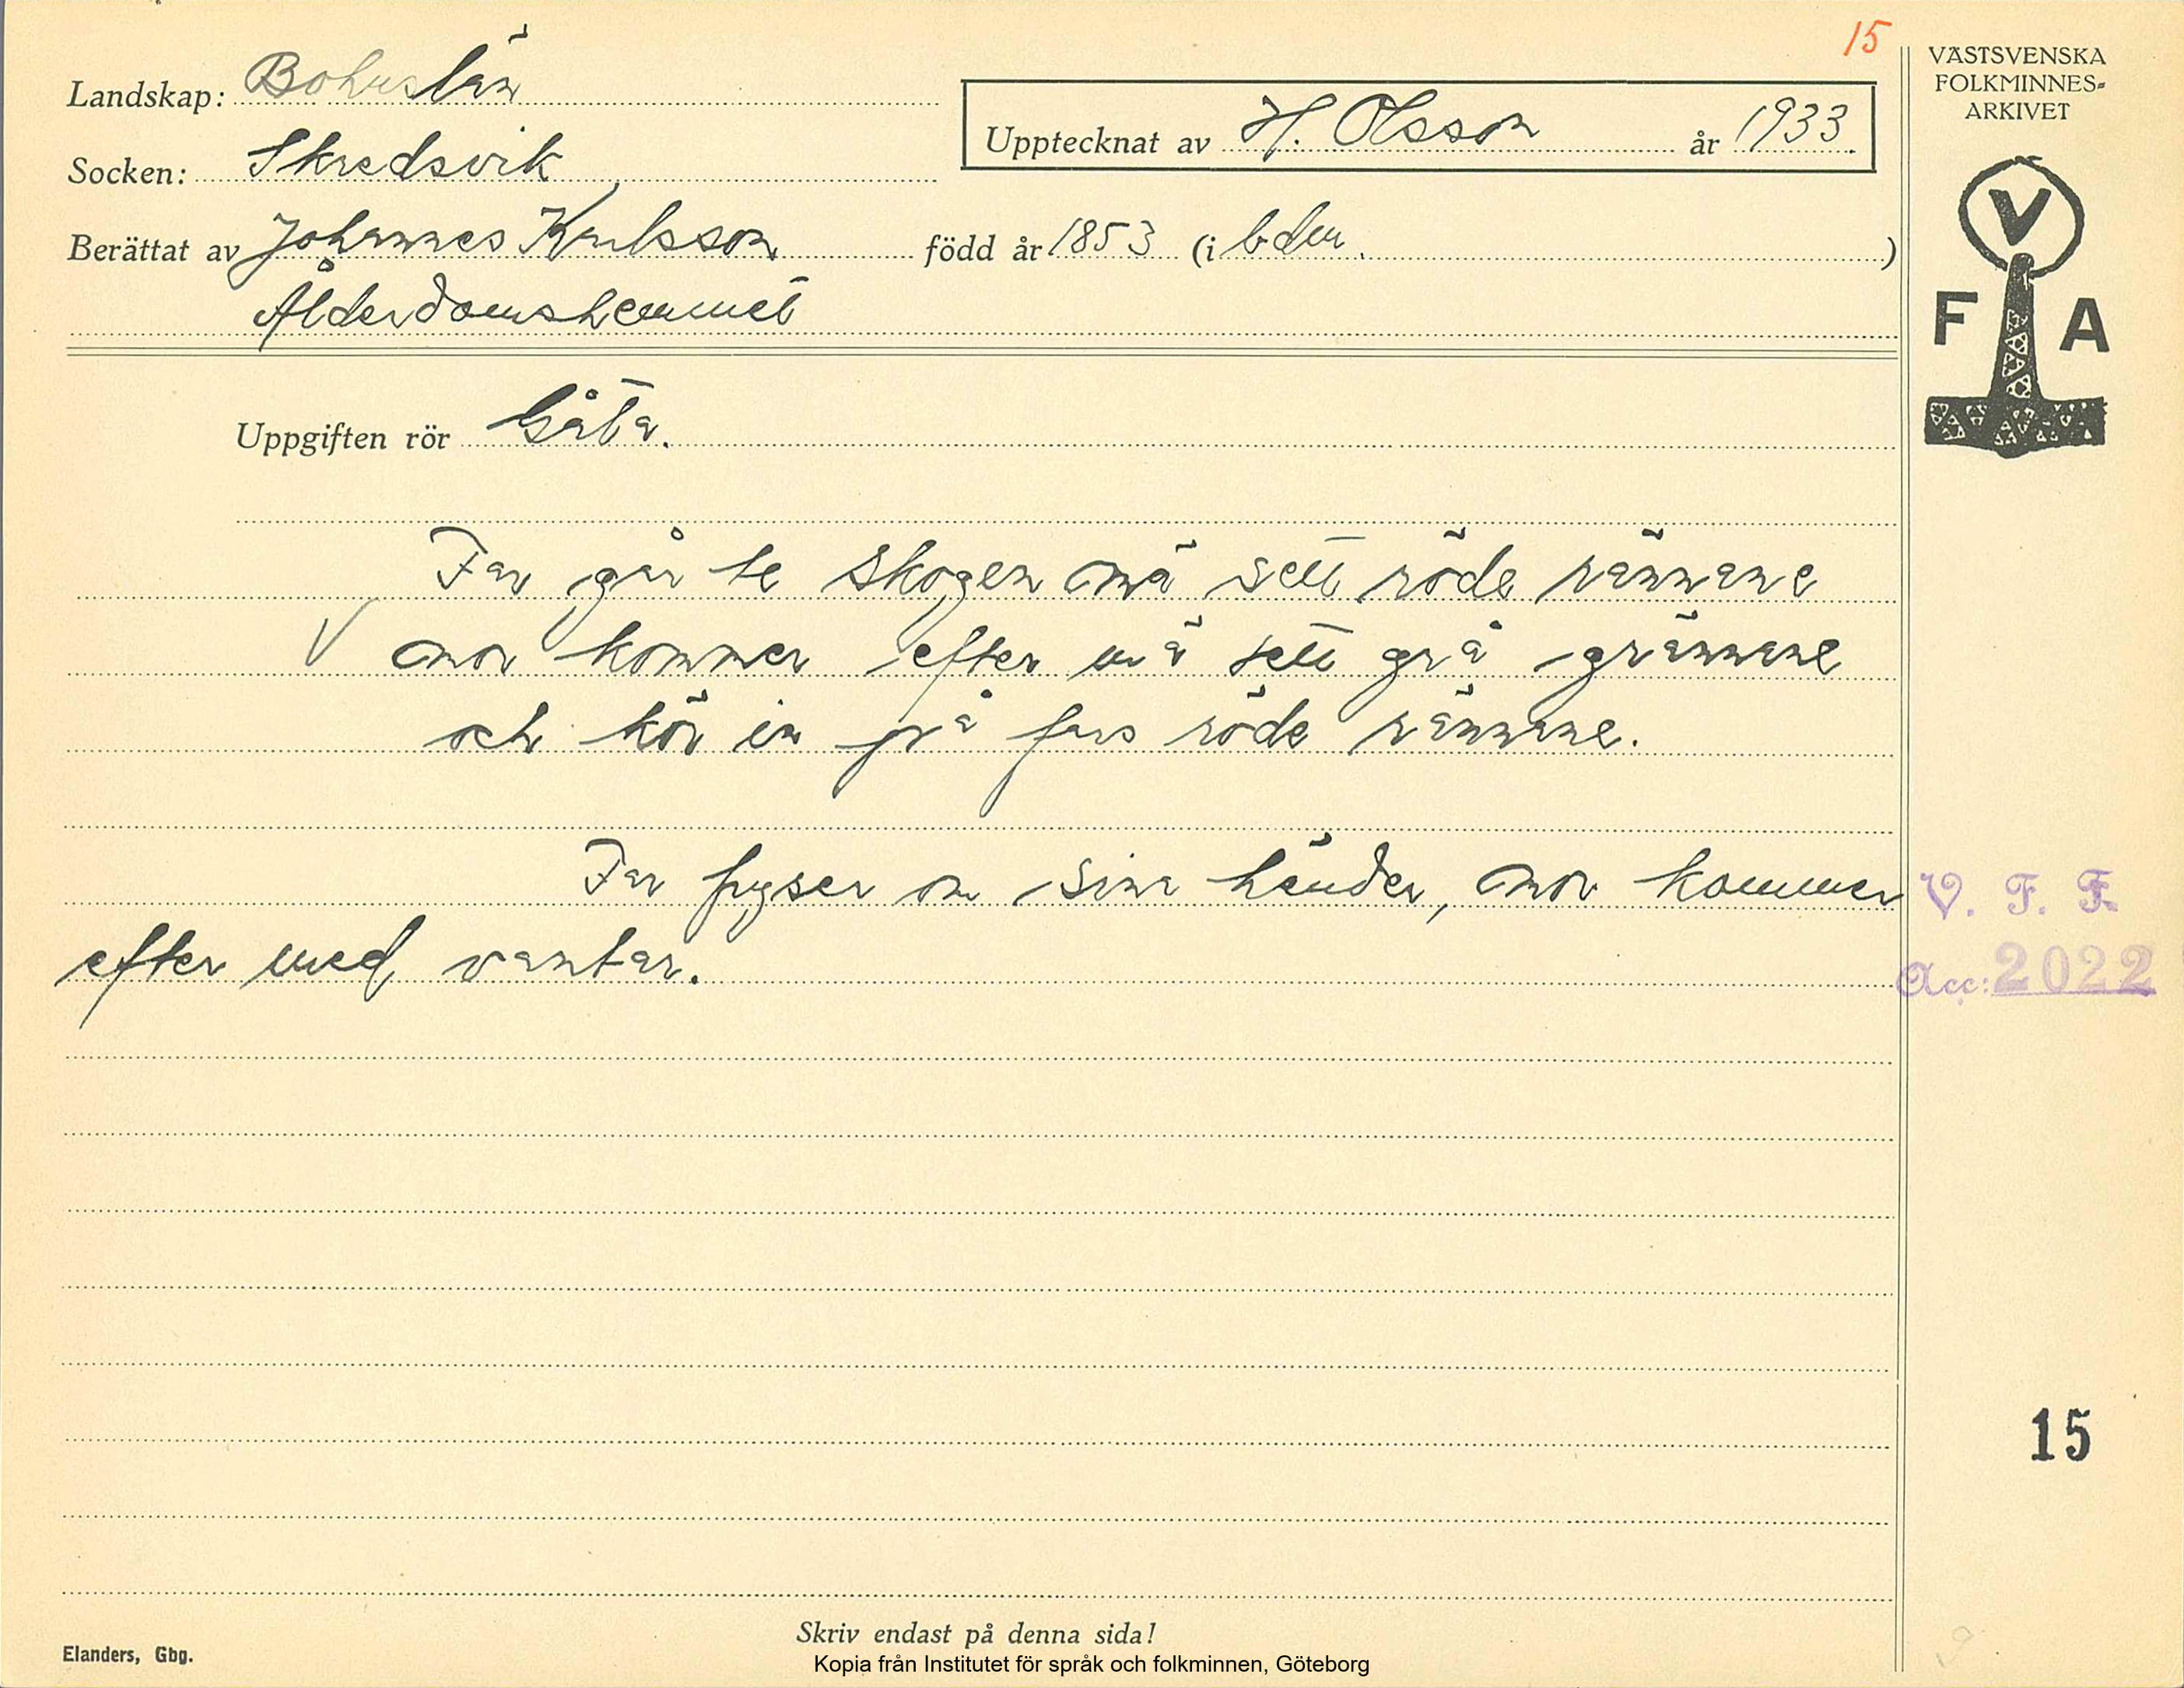 15
Landskap: Bohuslän
Upptecknat av H. Olsson år 1933.
Socken: Skredsvik
Berättat av Johannes Karlsson född år 1853 (i b-den.)
Ålderdomshemmet
VÄSTSVENSKA
FOLKMINNES-
ARKIVET
V
F A
Uppgiften rör Gåta.
Far går te skogen mä sett röde rännane
mor kommer efter mä sett grå grännane
och kör in på fars röde rännane.
Far fryser om sina händer, mor kommer
efter med vantar.
V. F. F.
Acc: 2022
15
Skriv endast på denna sida!
Elanders, Gbg.
Kopia från Institutet för språk och folkminnen, Göteborg